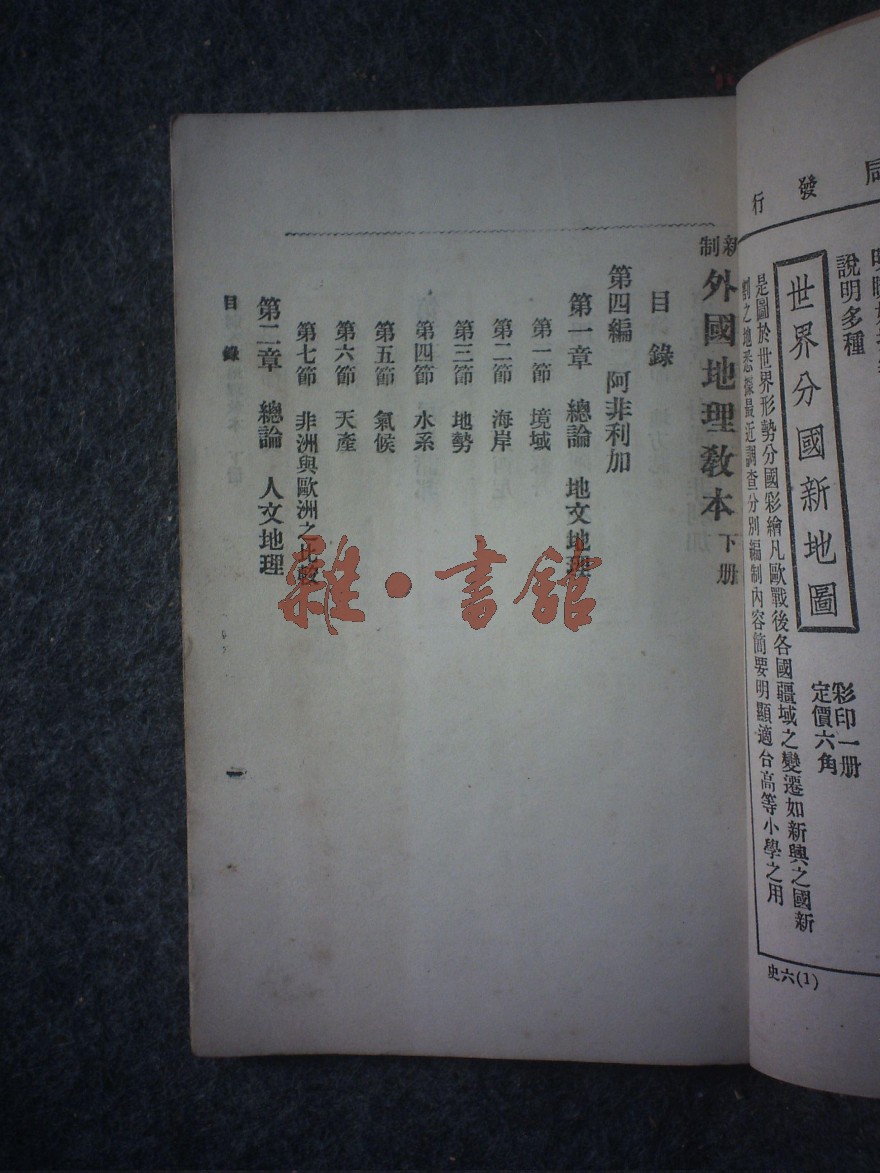 局發行
說明多種
世界分國新地圖
彩印一册
定價六角
是圖於世界形勢分國彩繪凡歐戰後各國疆域之變遷如新興之國新
割之地悉據最近調查分別編制內容簡要明顯適合高等小學之用
史六(1)
新制外國地理教本下册
目錄
第四編 阿非利加
第一章 總論 地文地理
第一節 境域
第二節 海岸
第三節 地勢
第四節 水系
第五節 氣候
第六節 天產
第七節 非洲與歐洲之比較
第二章 總論 人文地理
目錄
一
雜·書館